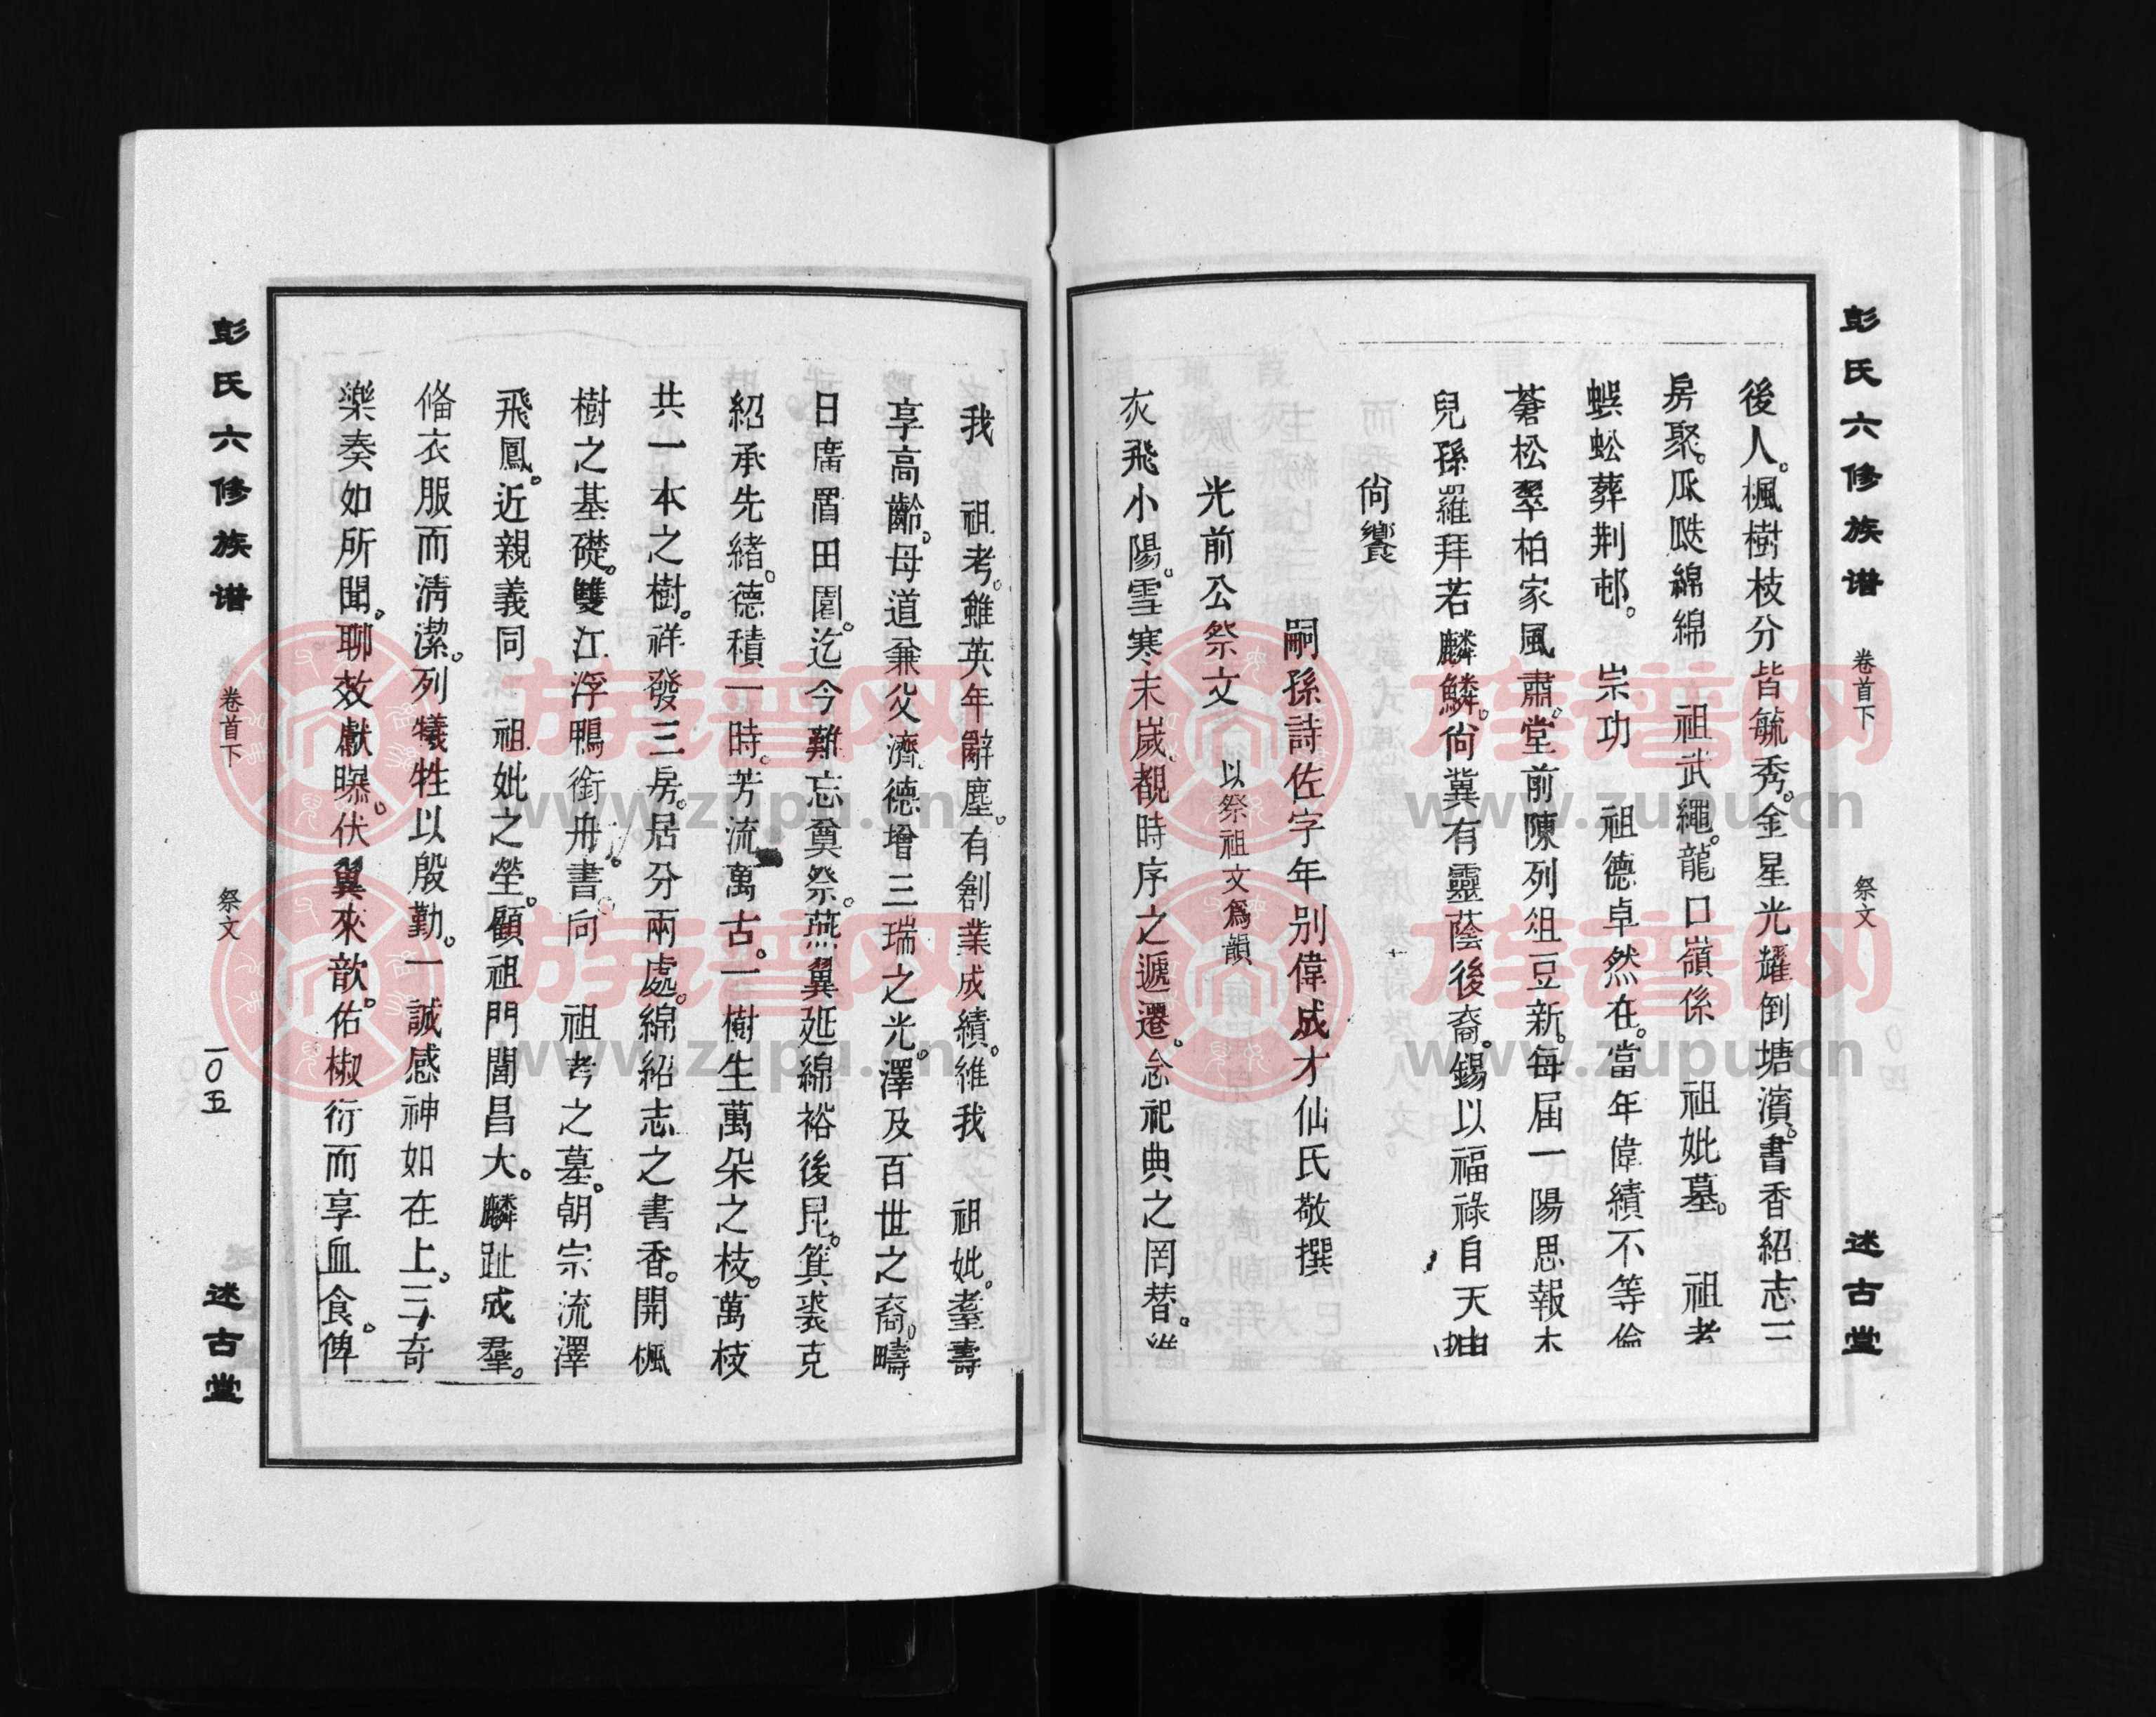 彭氏六修族谱 卷首下 祭文 述古堂
後人。楓樹枝分皆毓秀。金星光耀倒塘濱。書香紹志三
房聚。瓜瓞綿綿 祖武繩。龍口嶺係 祖妣墓。 祖考
蜈蚣葬荆邨。 宗功 祖德卓然在。當年偉績不等倫
蒼松翠柏家風肅。堂前陳列俎豆新。每届一陽思報本
兒孫羅拜若麟鱗。尙冀有靈蔭後裔。錫以福祿自天申
尙饗
嗣孫詩佐字年别偉成才仙氏敬撰
光前公祭文 以祭祖文爲韻
灰飛小陽。雪寒末歲。覩時序之遞遷。念祀典之罔替。維
我 祖考。雖英年辭塵。有創業成績。維我 祖妣。耋壽
享高齡。母道兼父濟。德增三瑞之光。澤及百世之裔。疇
日廣置田園。迄今難忘奠祭。燕翼延綿裕後昆。箕裘克
紹承先緒。德積一時。芳流萬古。一樹生萬朵之枝。萬枝
共一本之樹。祥發三房。居分兩處。綿紹志之書香。開楓
樹之基礎。雙江浮鴨銜舟書。向 祖考之墓。朝宗流澤
飛鳳。近親義同 祖妣之塋。顧祖門閭昌大。麟趾成羣。
俻衣服而淸潔。列犧牲以殷勤。一誠感神如在上。三奇
樂奏如所聞。聊效獻曝。伏翼來歆。佑椒衍而享血食。俾
彭氏六修族谱 卷首下 祭文 一〇五 述古堂
族谱网 www.zupu.cn
族谱网 www.zupu.cn
族谱网 www.zupu.cn
族谱网 www.zupu.cn